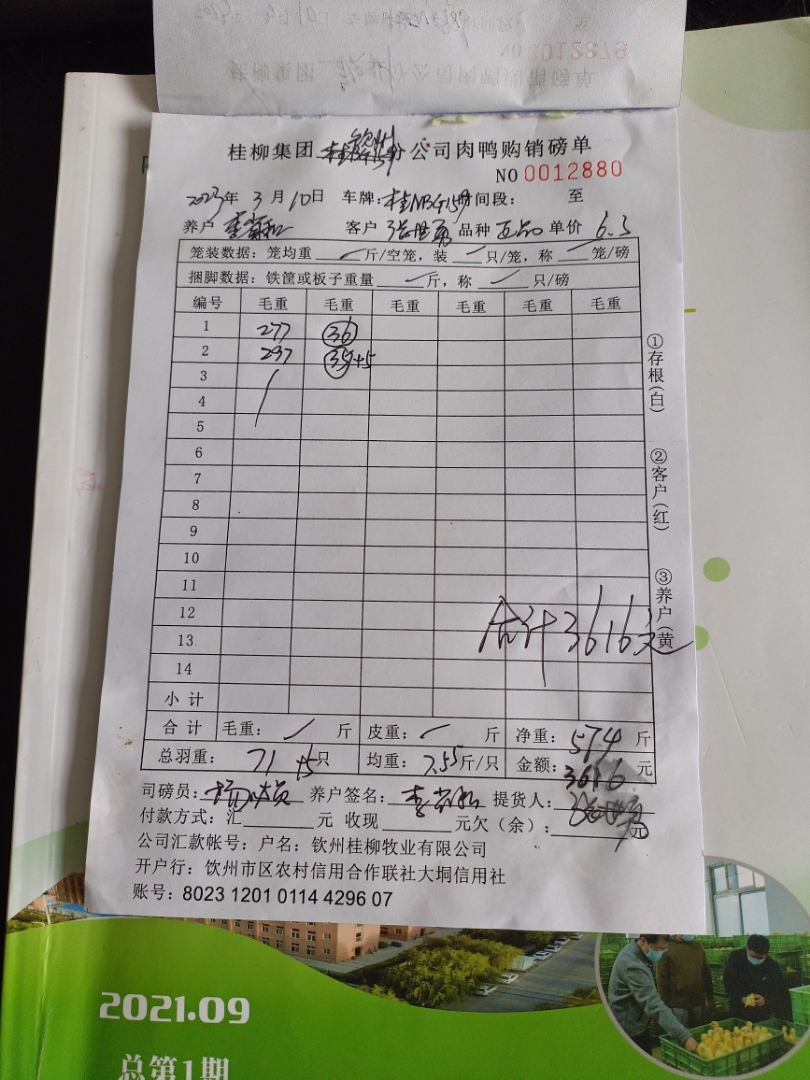 桂柳集团 钦州分公司肉鸭购销磅单
NO 0012880
2023年 3月10日 车牌:桂NB4159 时间段: 至
养户 客户 张世勇 品种 正品 单价 6.3
笼装数据:笼均重 斤/空笼,装 只/笼,称 笼/磅
捆脚数据:铁筐或板子重量 斤,称 只/磅
编号 毛重 毛重 毛重 毛重 毛重 毛重
1 277 36
2 297 35+5
3
4
5
6
7
8
9
10
11
12
13
14
合计3616元
小计
合计 毛重: 斤 皮重: 斤 净重: 574 斤
总羽重: 71+5只 均重: 7.55斤/只 金额: 3616 元
司磅员: 养户签名: 提货人:
付款方式:汇 元 收现 元欠(余): 元
公司汇款帐号:户名:钦州桂柳牧业有限公司
开户行:钦州市区农村信用合作联社大垌信用社
账号:8023 1201 0114 4296 07
①存根(白)
②客户(红)
③养户(黄
2021.09
总第1期